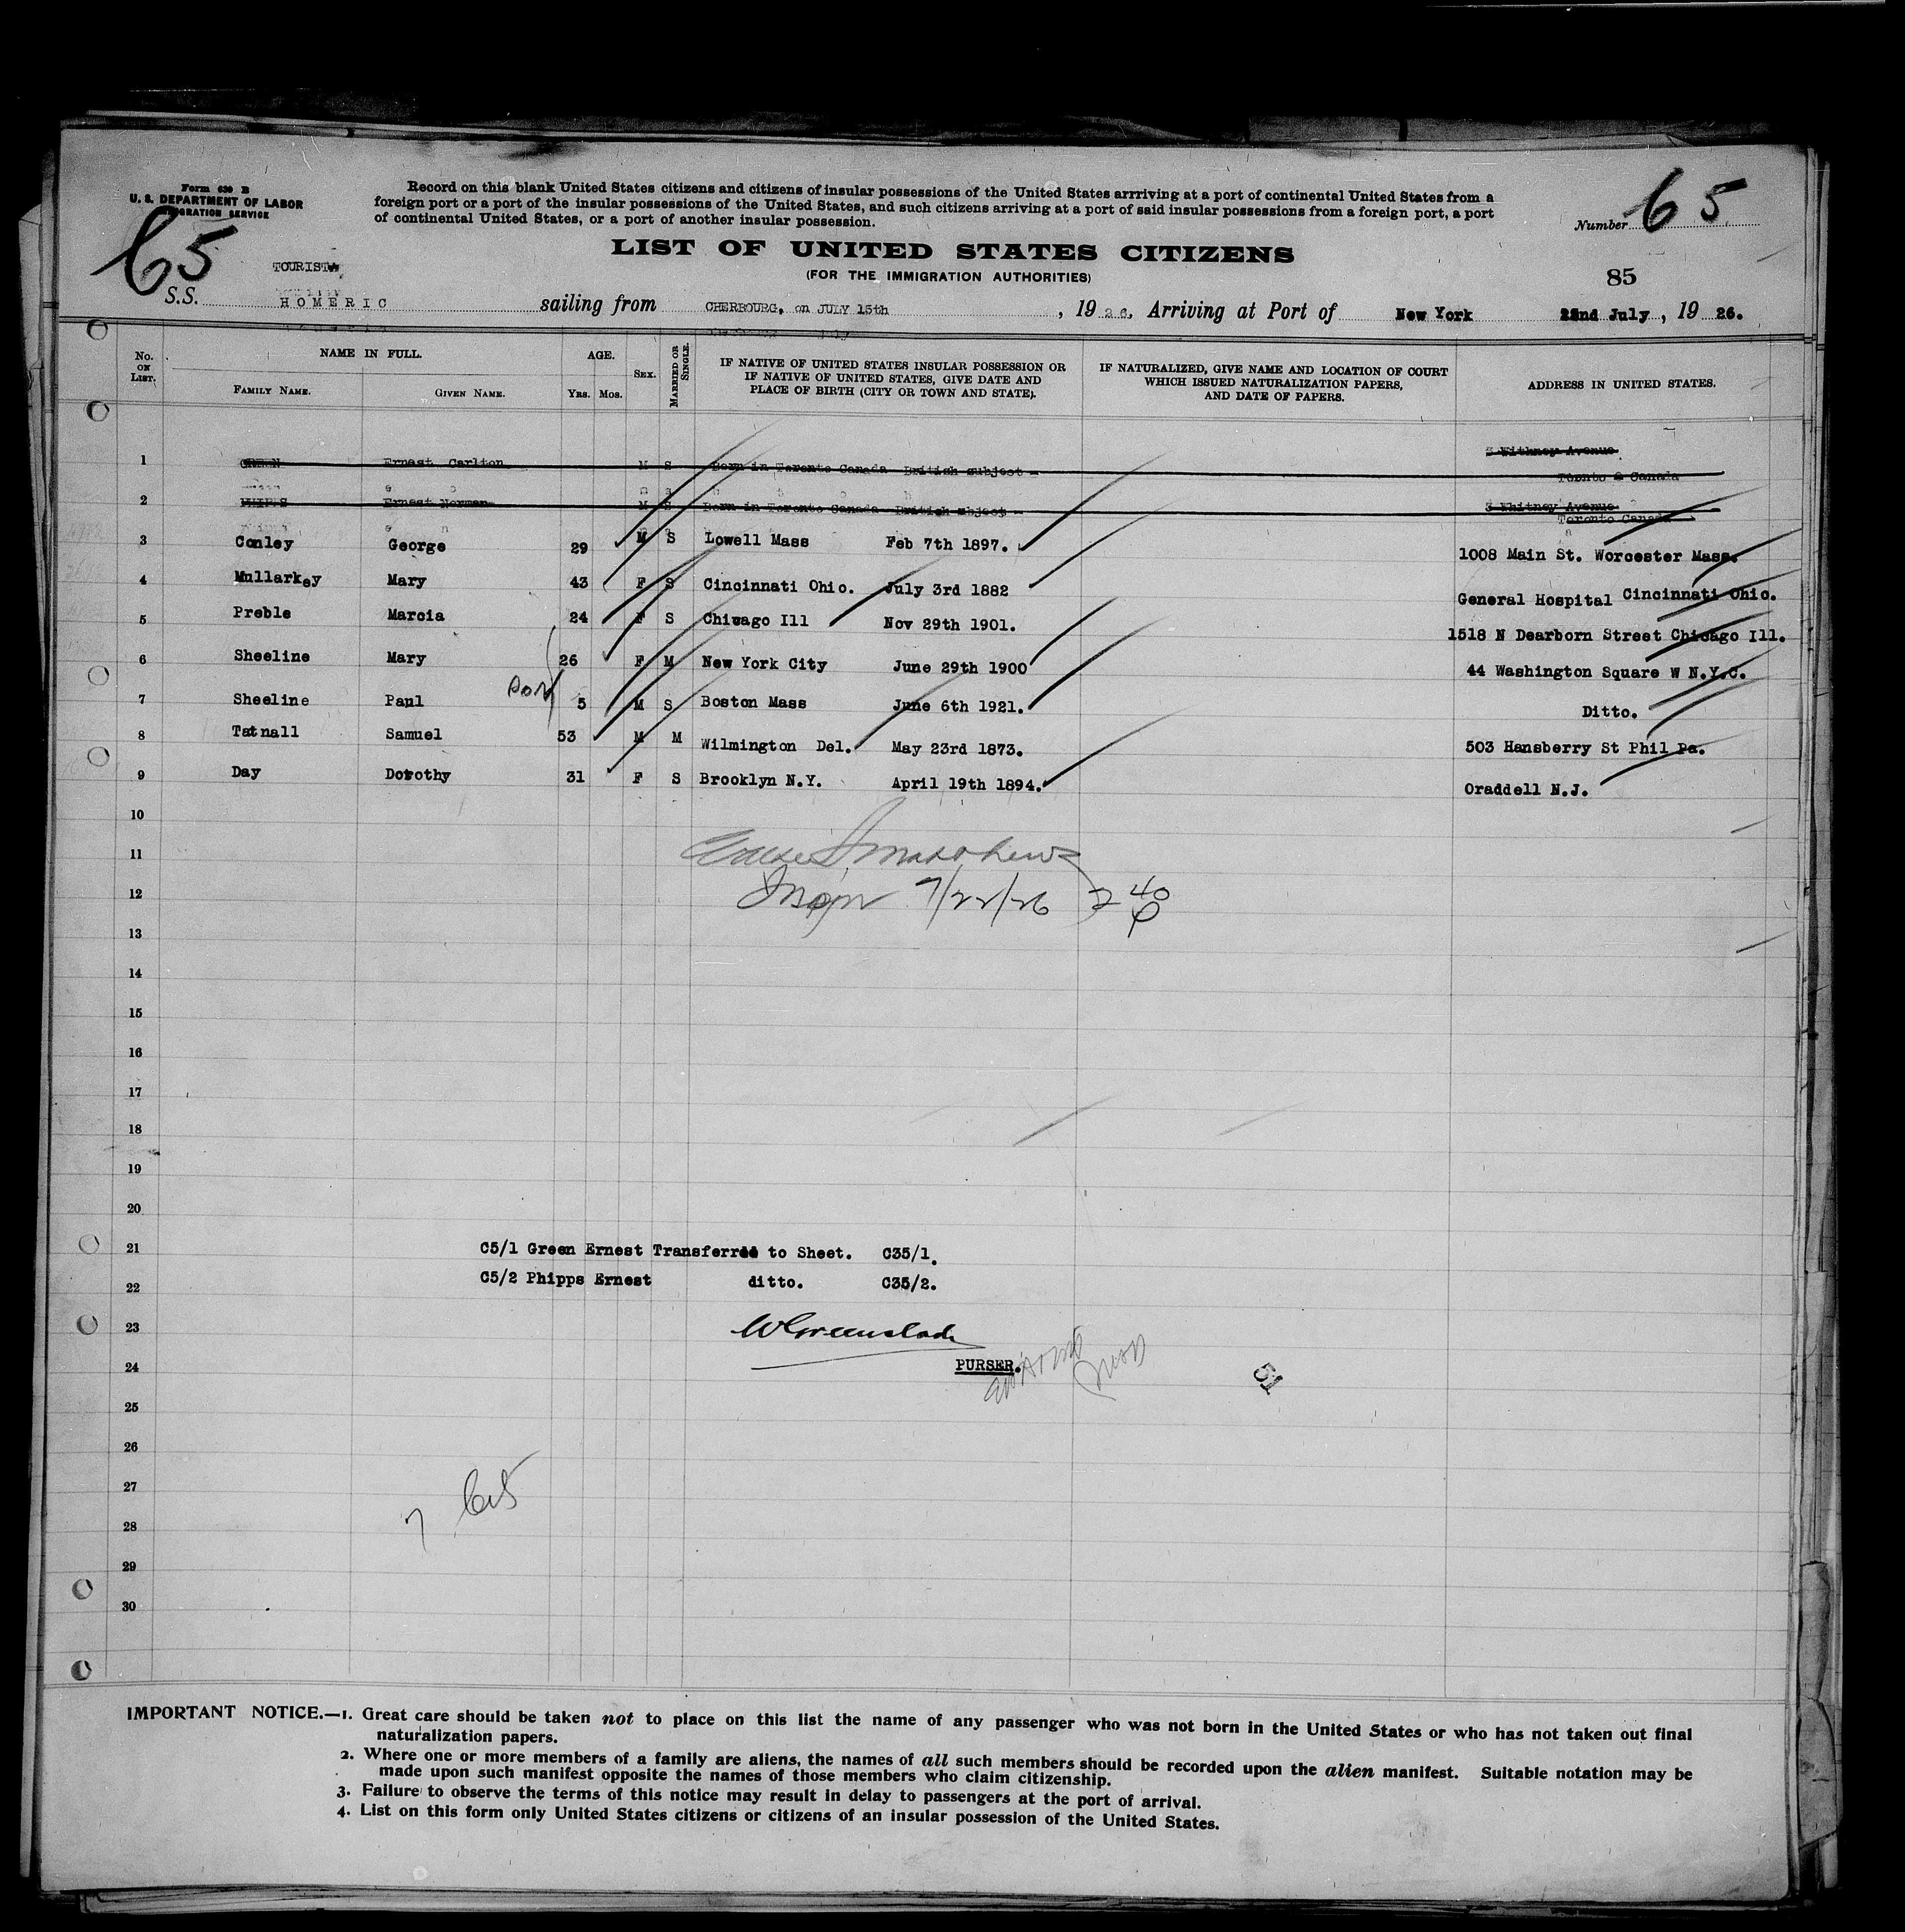 Form 630 B
U. S. DEPARTMENT OF LABOR
IMMIGRATION SERVICE
65
Record on this blank United States citizens and citizens of insular possessions of the United States arrriving at a port of continental United States from a
foreign port or a port of the insular possessions of the United States, and such citizens arriving at a port of said insular possessions from a foreign port, a port
of continental United States, or a port of another insular possession.
Number 65
LIST OF UNITED STATES CITIZENS
(FOR THE IMMIGRATION AUTHORITIES)
85
TOURIST
S.S. HOMERIC sailing from CHERBOURG, on JULY 15th, 1926. Arriving at Port of New York 22nd July, 1926.
No. ON LIST. NAME IN FULL. FAMILY NAME. GIVEN NAME. AGE. YRS. MOS. SEX. MARRIED OR SINGLE. IF NATIVE OF UNITED STATES INSULAR POSSESSION OR IF NATIVE OF UNITED STATES, GIVE DATE AND PLACE OF BIRTH (CITY OR TOWN AND STATE). IF NATURALIZED, GIVE NAME AND LOCATION OF COURT WHICH ISSUED NATURALIZATION PAPERS, AND DATE OF PAPERS. ADDRESS IN UNITED STATES.
1 GREEN Ernest Carlton M S Born in Toronto Canada British subject 3 Withney Avenue Toronto Canada
2 PHIPPS Ernest Norman M S Born in Toronto Canada British sbject 3 Whitney Avenue Toronto Canada
3 Conley George 29 M S Lowell Mass Feb 7th 1897. 1008 Main St. Worcester Mass.
4 Mullarkey Mary 43 F S Cincinnati Ohio. July 3rd 1882 General Hospital Cincinnati Ohio.
5 Preble Marcia 24 F S Chicago Ill Nov 29th 1901. 1518 N Dearborn Street Chicago Ill.
6 Sheeline Mary 26 F M New York City June 29th 1900 44 Washington Square W N.Y.C.
7 Sheeline Paul son 5 M S Boston Mass June 6th 1921. Ditto.
8 Tatnall Samuel 53 M M Wilmington Del. May 23rd 1873. 503 Hansberry St Phil Pa.
9 Day Dorothy 31 F S Brooklyn N.Y. April 19th 1894. Oraddell N.J.
10
11 Matthews
12 Inspr 7/22/26 240
13
14
15
16
17
18
19
20
21 C5/1 Green Ernest Transferred to Sheet. C35/1.
22 C5/2 Phipps Ernest ditto. C35/2.
23 WGreenslade
24 PURSER.
51
25
26
27
7 65
28
29
30
IMPORTANT NOTICE.—1. Great care should be taken not to place on this list the name of any passenger who was not born in the United States or who has not taken out final
naturalization papers.
2. Where one or more members of a family are aliens, the names of all such members should be recorded upon the alien manifest. Suitable notation may be
made upon such manifest opposite the names of those members who claim citizenship.
3. Failure to observe the terms of this notice may result in delay to passengers at the port of arrival.
4. List on this form only United States citizens or citizens of an insular possession of the United States.